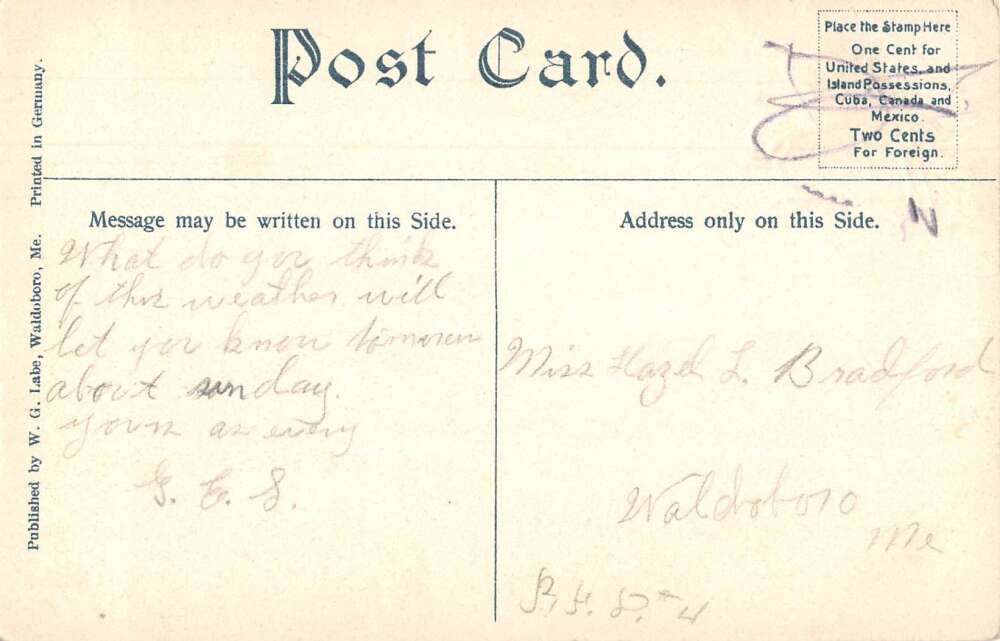 Post Card.
Place the Stamp Here
One Cent for
United States, and
Island Possessions,
Cuba, Canada and
Mexico.
Two Cents
For Foreign.
Published by W. G. Labe, Waldoboro, Me. Printed in Germany.
Message may be written on this Side.
What do you think
of this weather will
let you know tomorrow
about sunday.
yours as every
G. E. S.
Address only on this Side.
Miss Hazel L. Bradford
Waldoboro
Me
R. F. D. #4